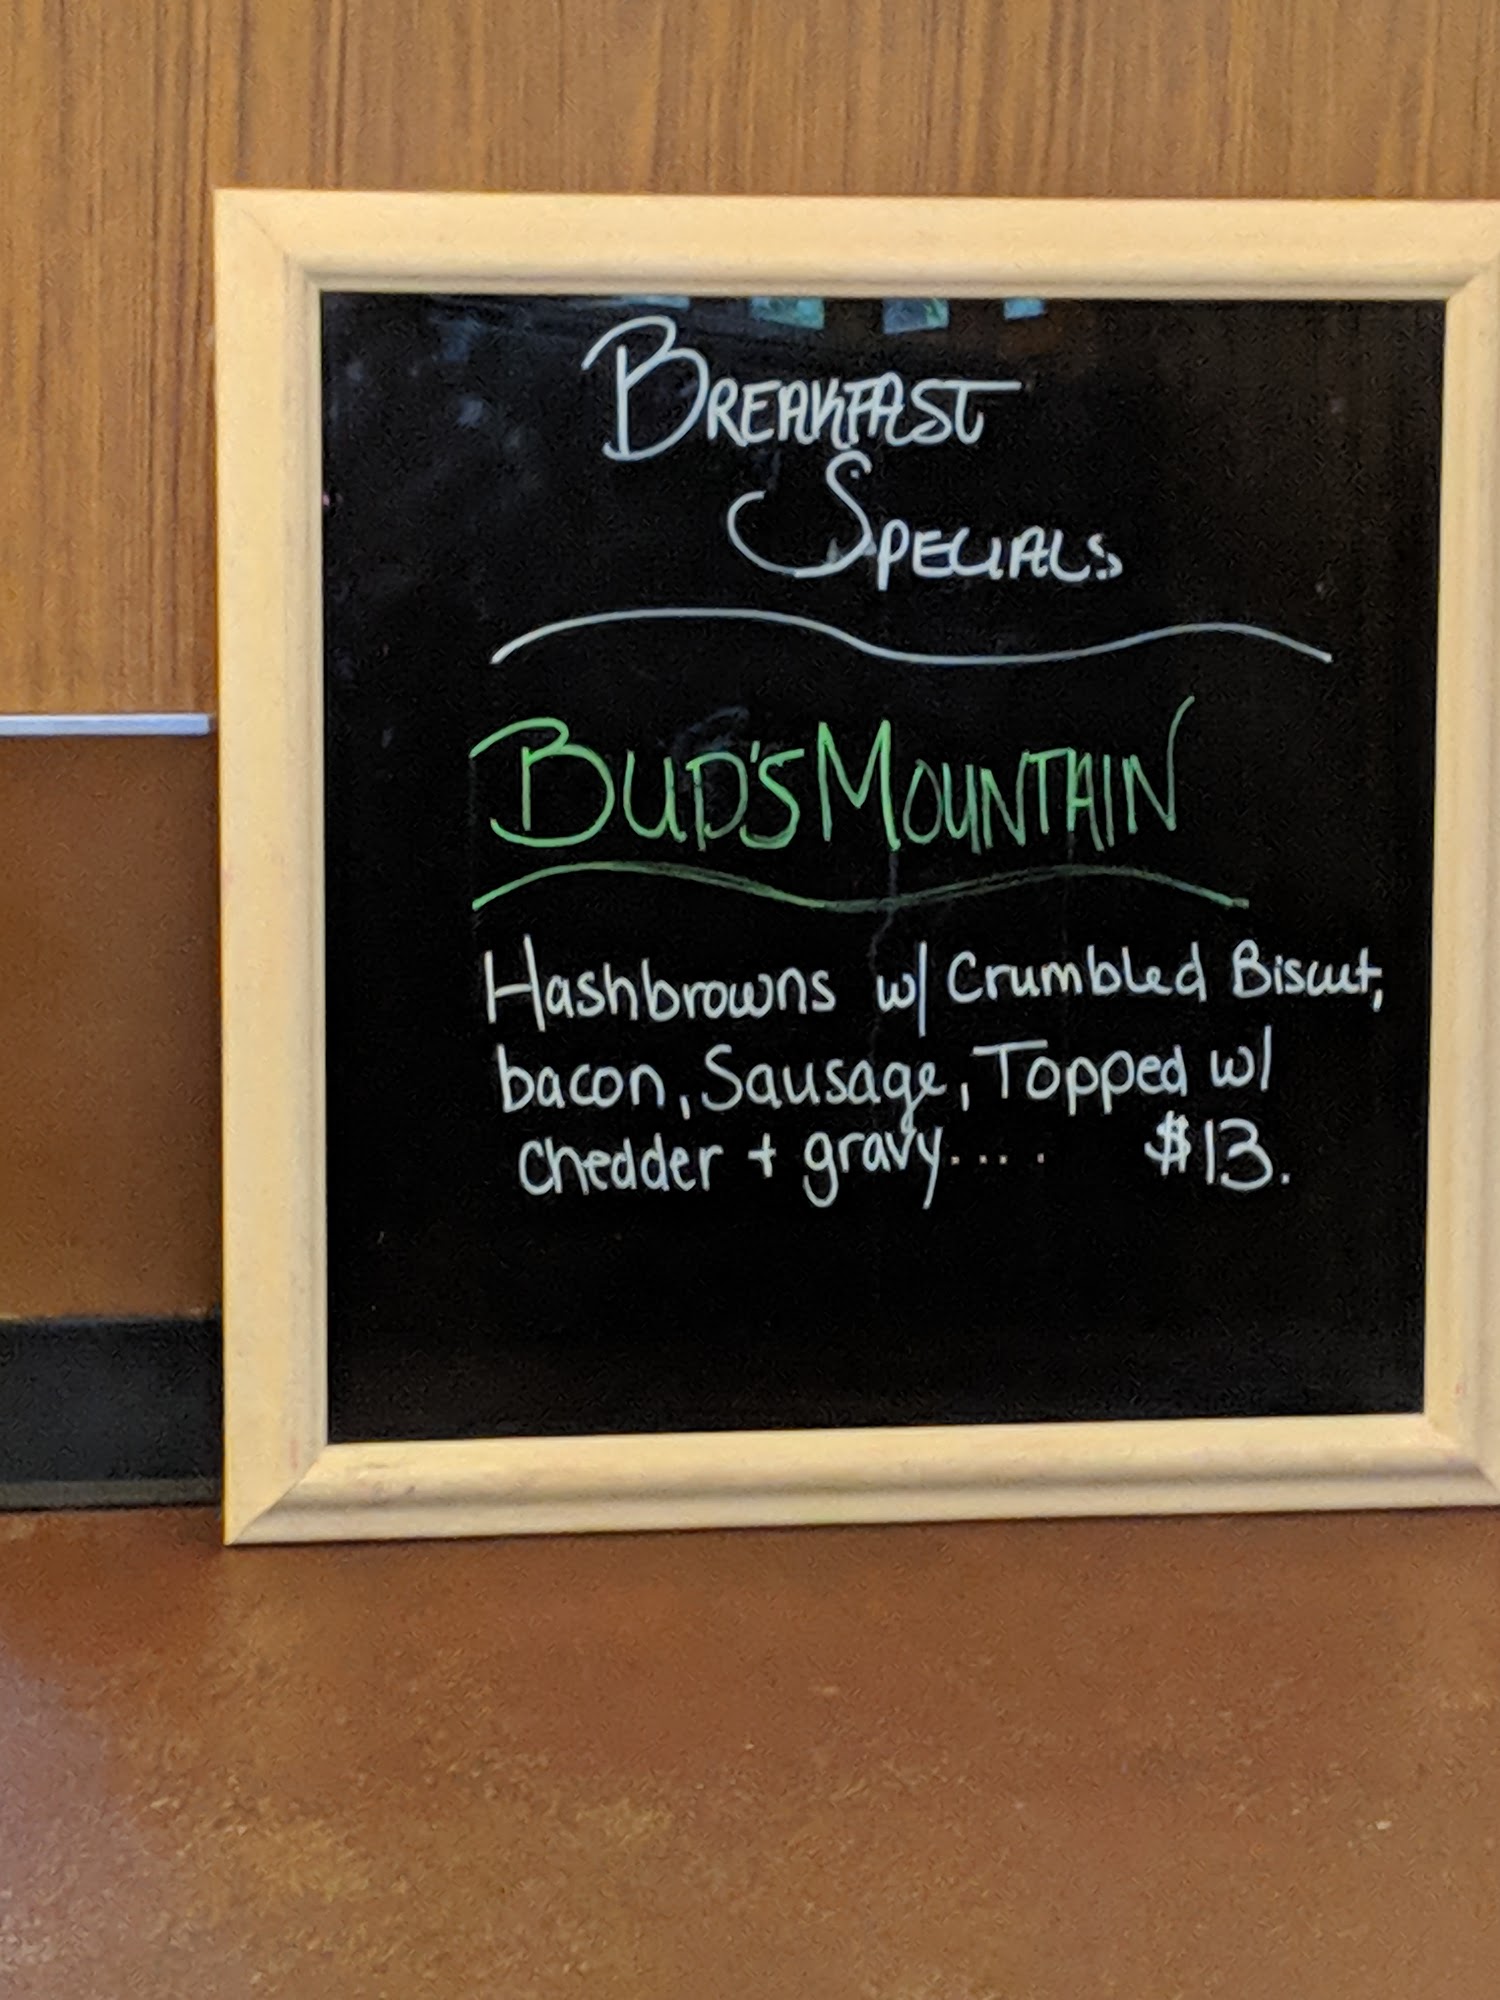 BREAKFAST
SPECIALS
BUD'S MOUNTAIN
Hashbrowns w/ Crumbled Biscut,
bacon, Sausage, Topped w/
Chedder + gravy.... $13.